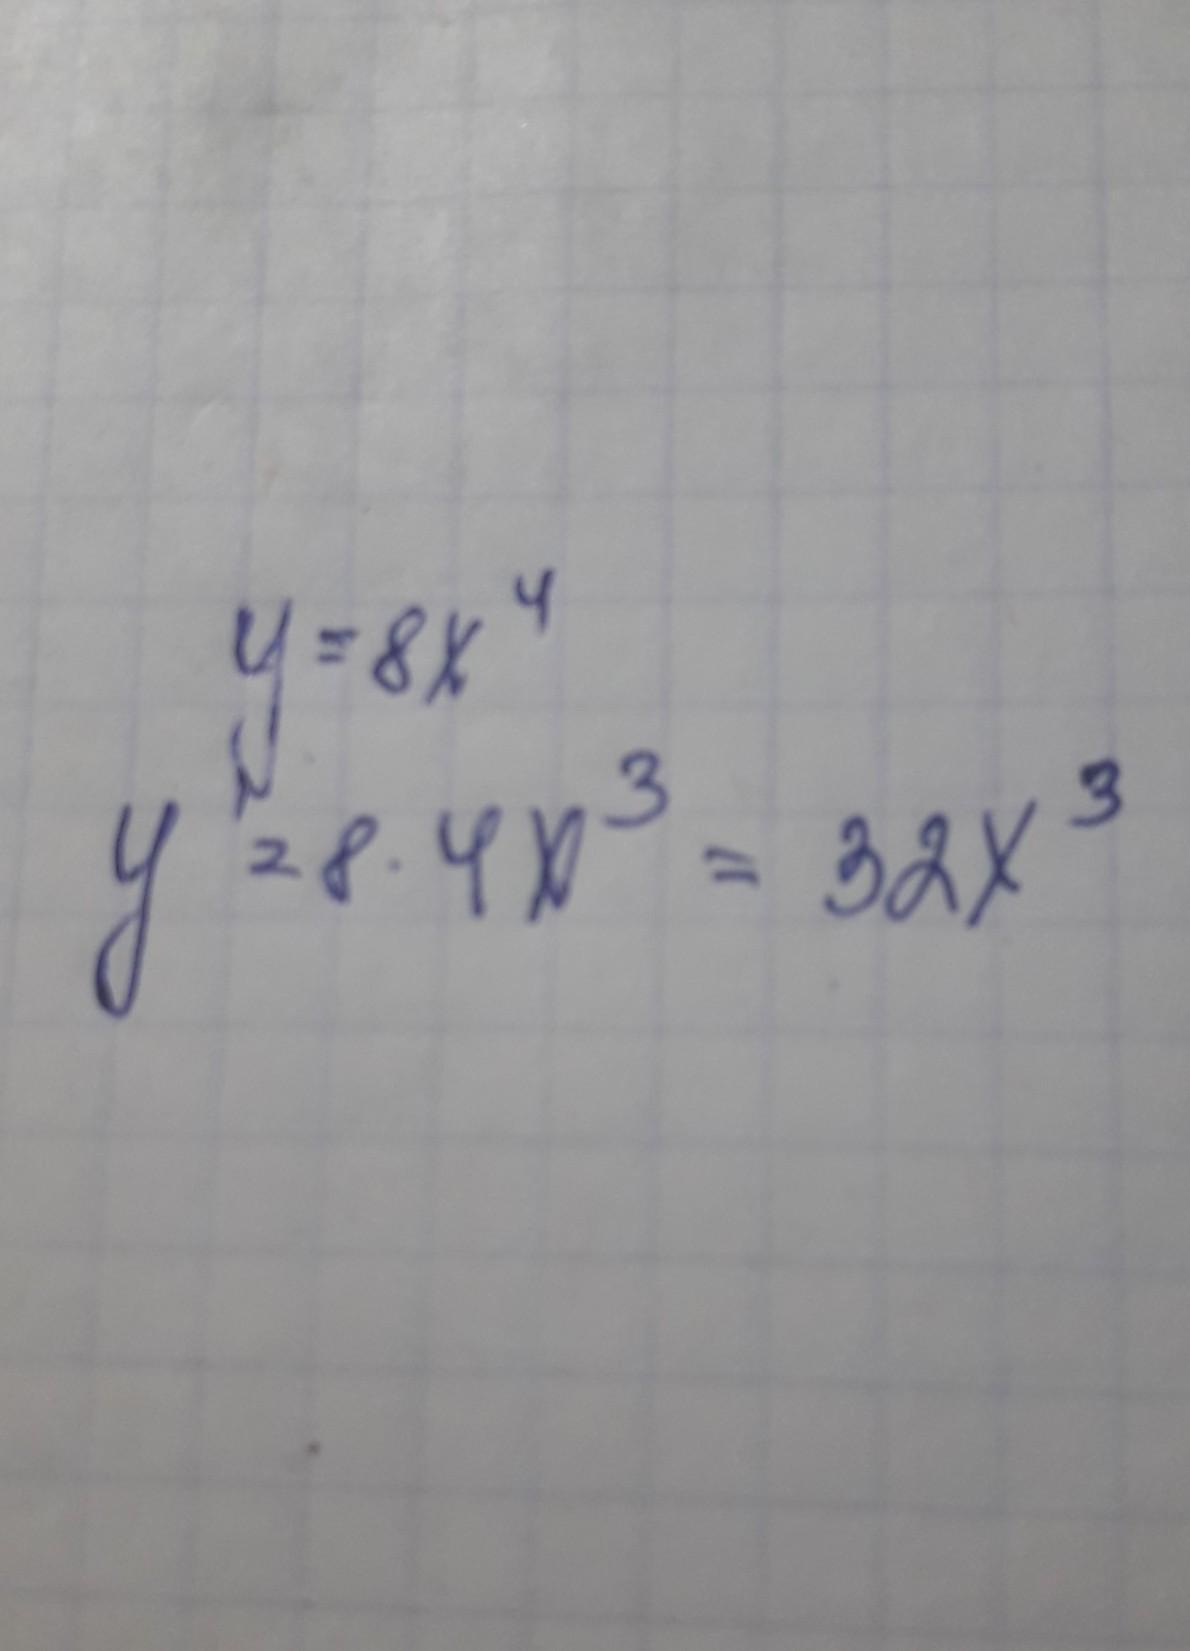 y = 8x⁴
y' = 8 · 4x³ = 32x³